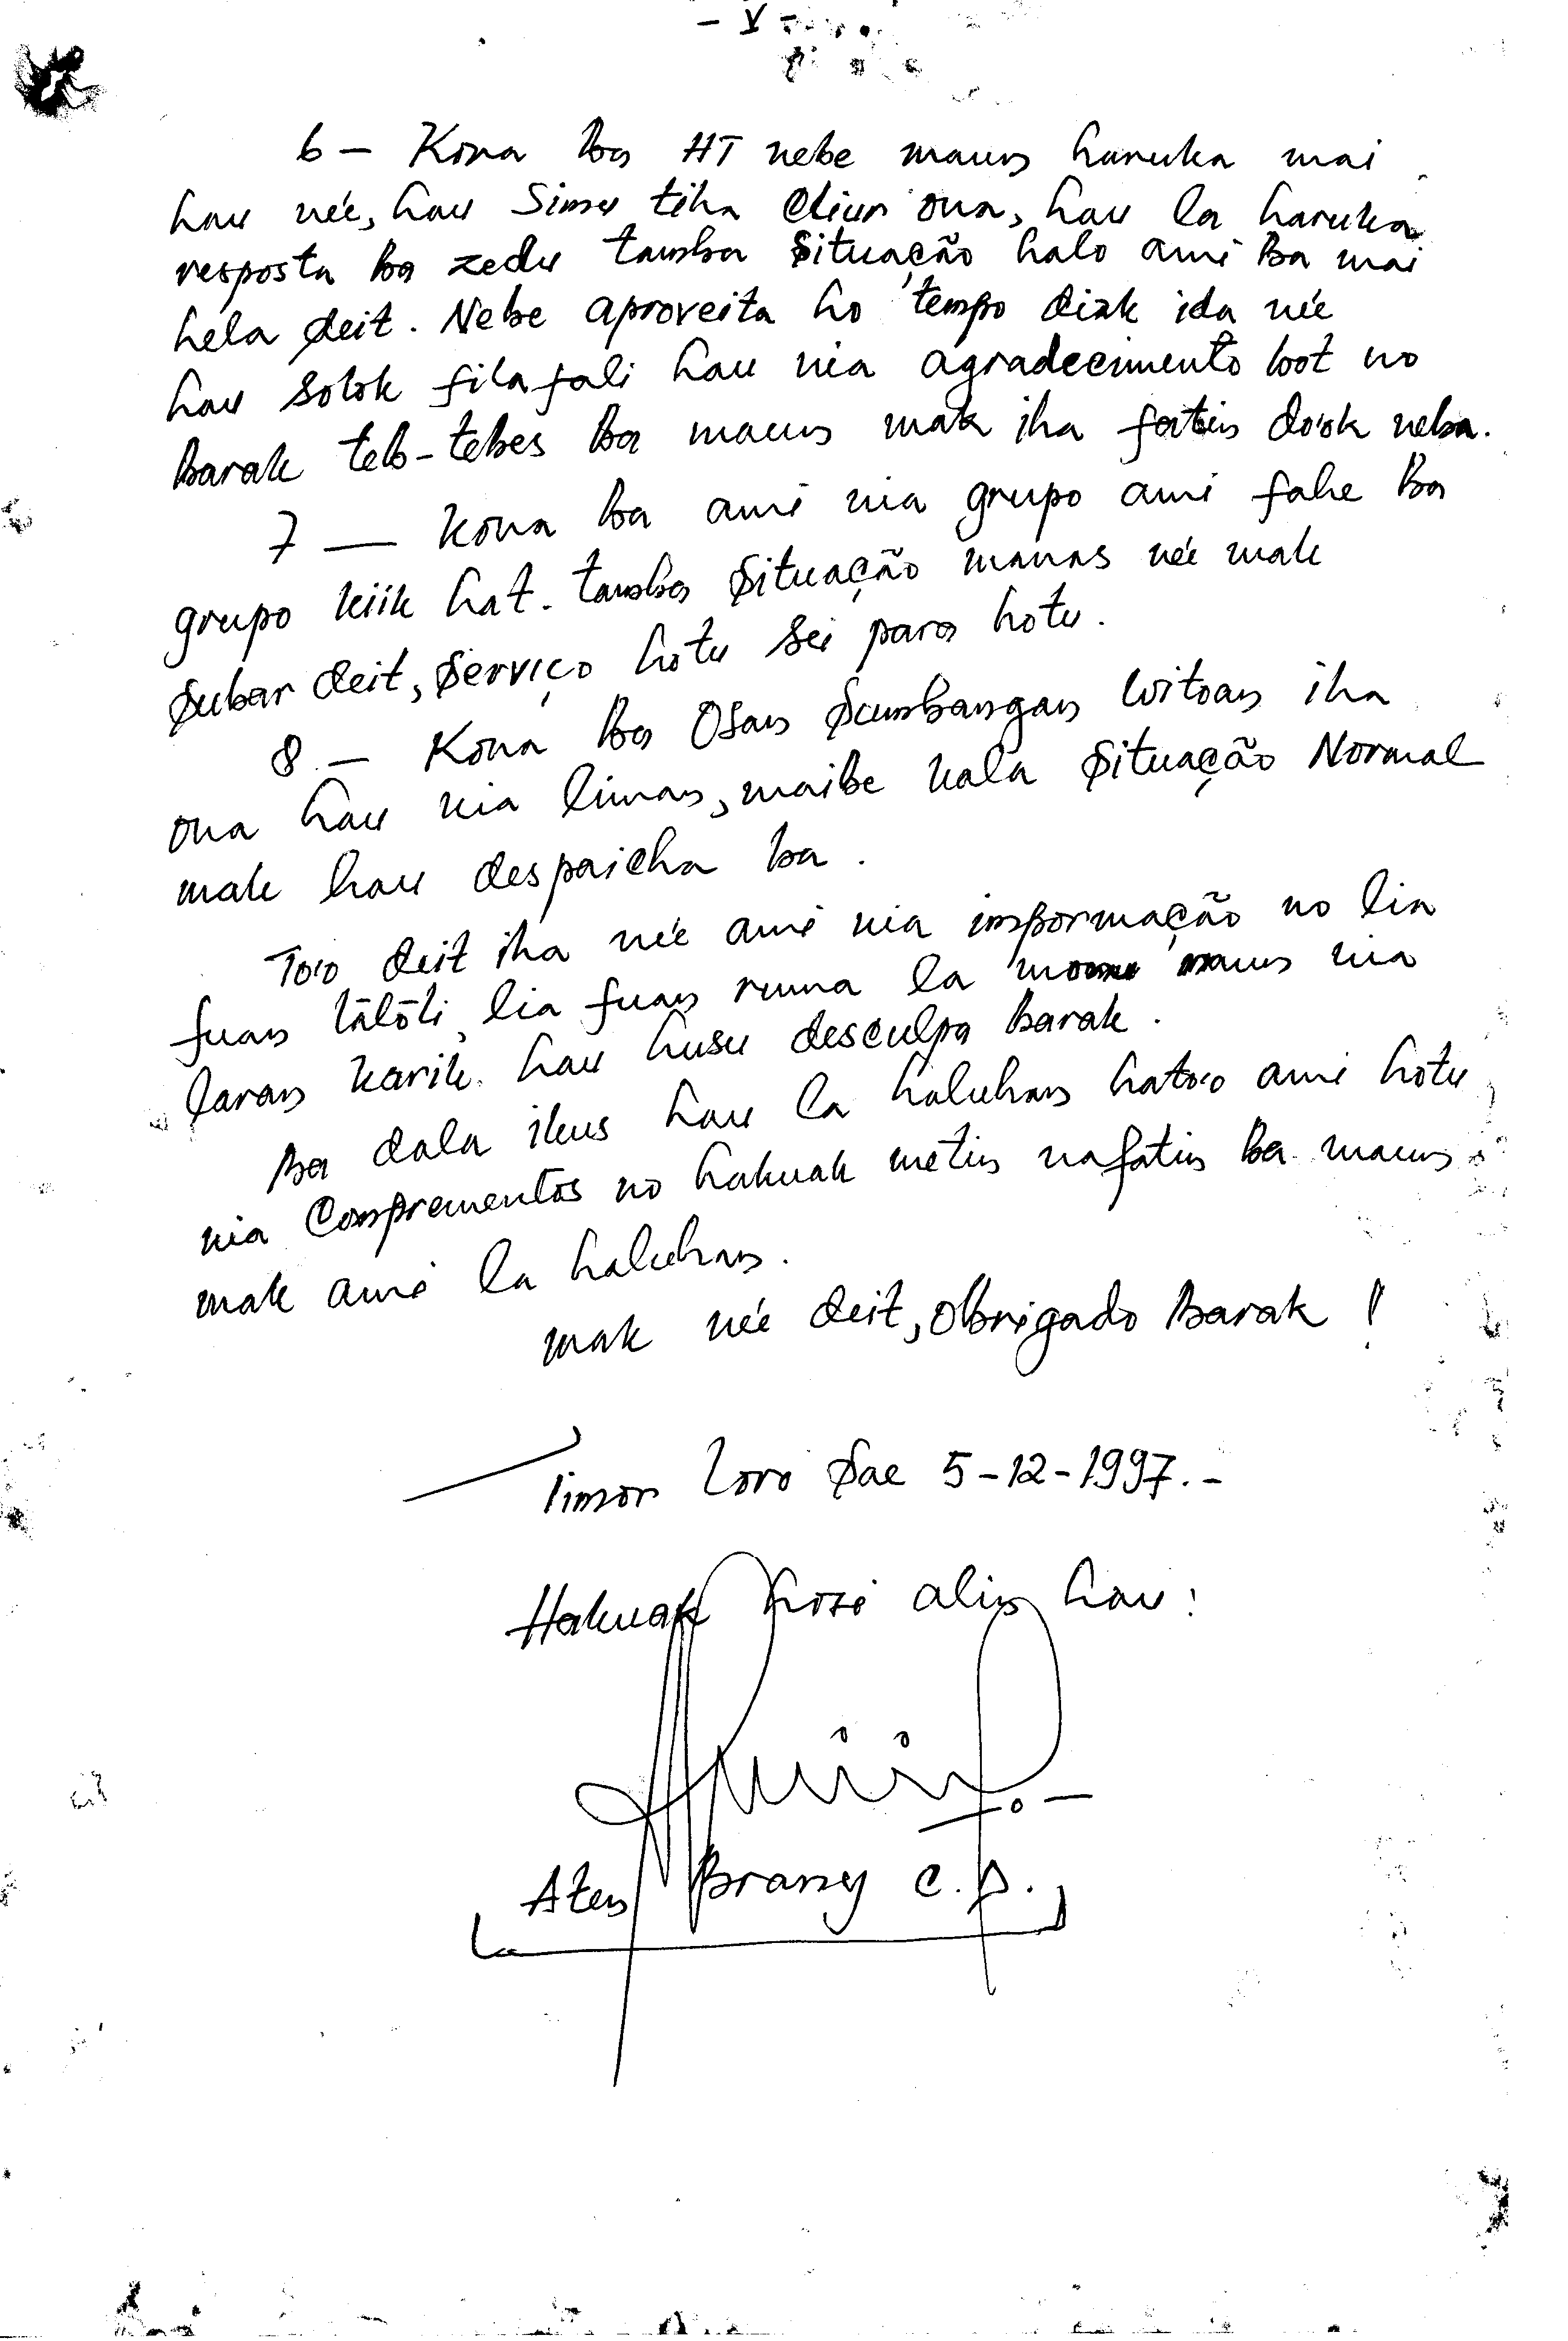 - V -
6 - Kona ba HT nebe maun haruka mai
hau né'e, hau Simu tiha cliun ona, hau la haruka
resposta ba zedu tamba Situação halo ami ba mai
hela deit. Nebe aproveita ho tempo diak ida né'e
hau solok fila fali hau nia agradecimento bot no
barak teb-tebes ba maun mak iha fatin do'ok neba.
7 — Kona ba ami nia grupo ami fahe ba
grupo kiik hat. tamba Situação manas né'e mak
Subar deit, Serviço hotu sei para hotu.
8 - Kona ba Osan Sumbangan Uitoan iha
ona hau nia liman, maibe kala Situação Normal
mak hau despaicha ba.
To'o deit iha né'e ami nia impormação no lia
fuan lālōli, lia fuan ruma la maun nia
laran karik. hau husu desculpa barak.
Ba dala ikus hau la haluhan hato'o ami hotu
nia Comprementos no hakuak metin nafatin ba maun
mak ami la haluhan.
mak né'e deit, Obrigado Barak !
Timor Loro Sae 5-12-1997.-
Hakuak hosi alin hau:
Aten Brany C.D.